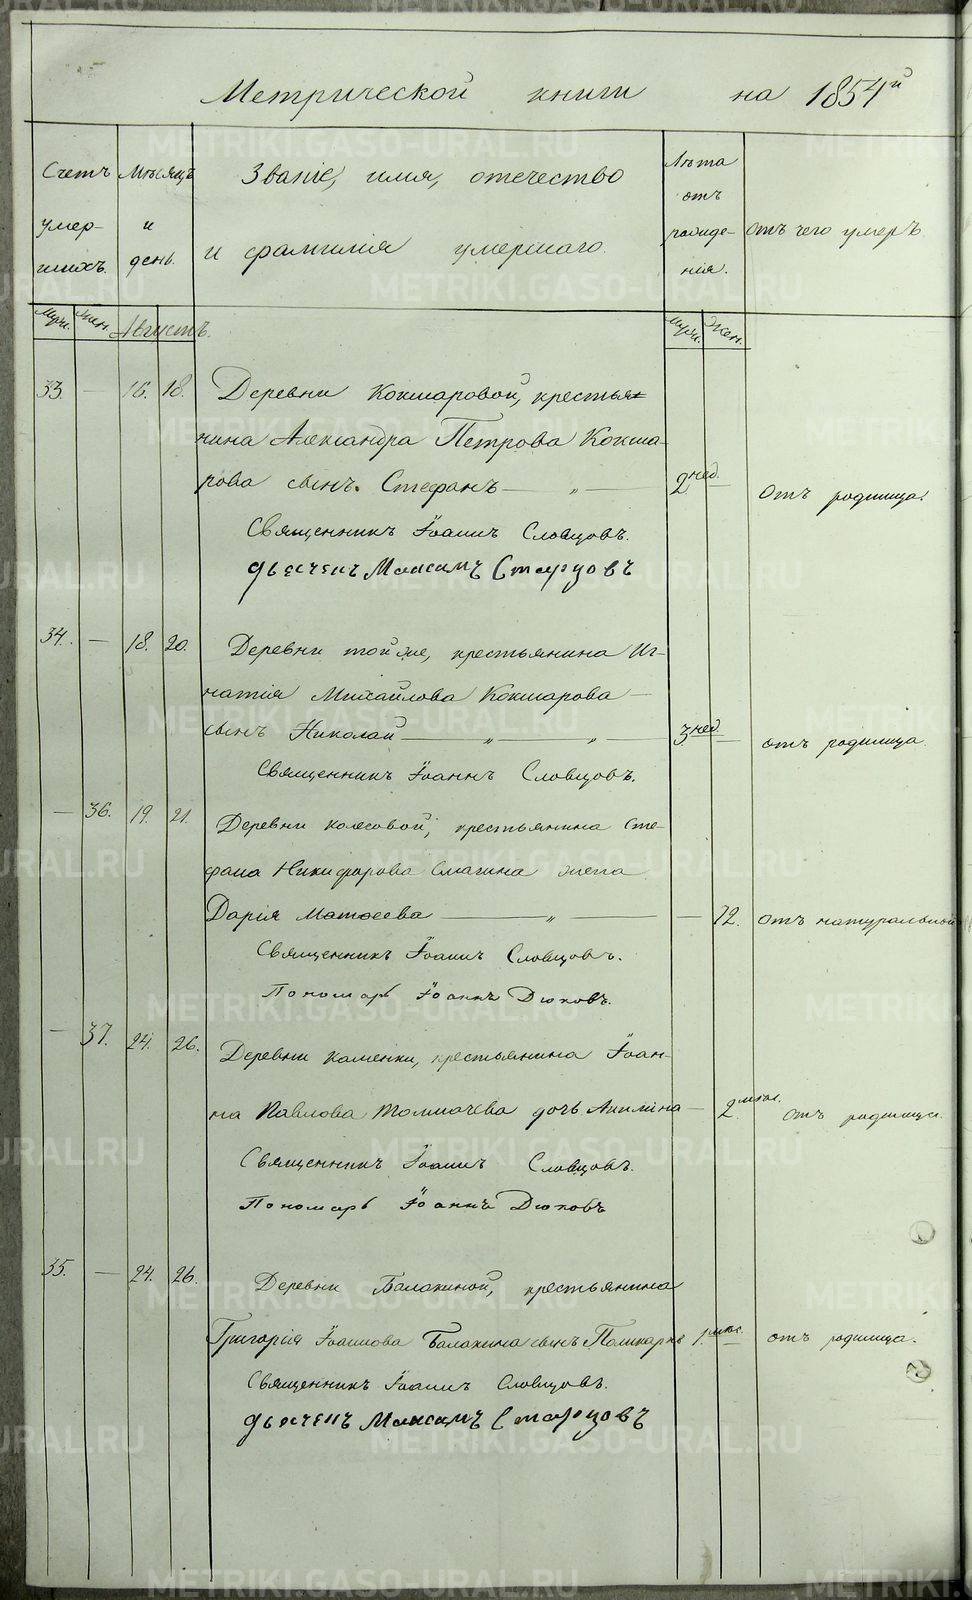 Метрической книги на 1854й
Счетъ умер- шихъ.
Мѣсяцъ и день.
Званіе, имя, отечество
и фамилія умершаго.
Лѣта отъ рожде- нія.
отъ чего умеръ.
Муж. Жен. Августъ. Муж. Жен.
33. — 16. 18. Деревни Кокшаровой, крестья-
нина Александра Петрова Кокша-
рова сынъ Стефанъ — „ — 2 нед. — отъ родимца.
Священникъ Іоаннъ Словцовъ.
Дьячекъ Максимъ Старцовъ
34. — 18. 20. Деревни той же, крестьянина Иг-
натія Михайлова Кокшарова —
сынъ Николай — „ — „ — 3 нед. — отъ родимца.
Священникъ Іоаннъ Словцовъ.
— 36. 19. 21. Деревни Колесовой, крестьянина Сте-
фана Никифорова Смагина жена
Дарія Матѳеева — „ — — 72. отъ натуральной
Священникъ Іоаннъ Словцовъ.
Пономарь Іоаннъ Дюковъ.
— 37. 24. 26. Деревни Каменки, крестьянина Іоан-
на Павлова Толмачева дочь Акилина — 2 мѣс. отъ родимца.
Священникъ Іоаннъ Словцовъ.
Пономарь Іоаннъ Дюковъ
35. — 24. 26. Деревни Балакиной, крестьянина
Григорія Іоаннова Балакина сынъ Поликарпъ 1 мѣс. — отъ родимца.
Священникъ Іоаннъ Словцовъ.
Дьячекъ Максимъ Старцовъ
METRIKI.GASO-URAL.RU